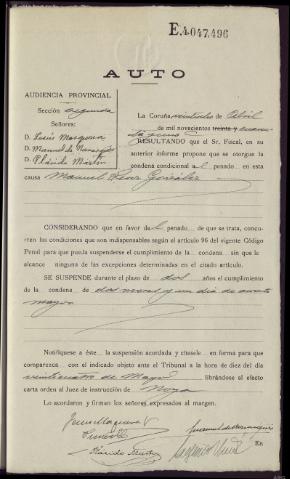 E.4.047.496
AUTO
AUDIENCIA PROVINCIAL
Sección segunda
Señores:
D. Jesús Mosquera
D. Manuel de
D. Plácido Martín
La Coruña veintiocho de Abril
de mil novecientos treinta y cuaren-
ta y uno
RESULTANDO que el Sr. Fiscal, en su
anterior informe propone que se otorgue la
condena condicional al penado... en esta
causa Manuel González
CONSIDERANDO que en favor del penado... de que se trata, concu-
rren las condiciones que son indispensables según el artículo 96 del vigente Código
Penal para que pueda suspenderse el cumplimiento de la condena... sin que le
alcance ninguna de las excepciones determinadas en el citado artículo.
SE SUSPENDE durante el plazo de dos años el cumplimiento
de la condena de dos meses y un día de arresto
mayor
Notifíquese a éste... la suspensión acordada y cítesele en forma para que
comparezca con el indicado objeto ante el Tribunal a la hora de diez del día
veinticuatro de Mayo librándose al efecto
carta orden al Juez de instrucción de Noya
Lo acordaron y firman los señores expresados al margen.